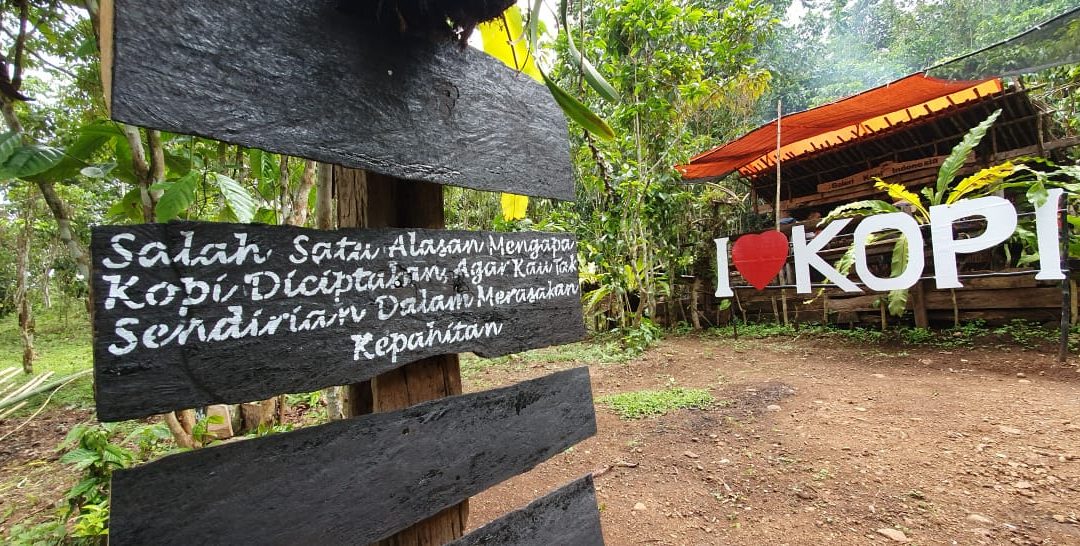 Salah Satu Alasan Mengapa
Kopi Diciptakan, Agar Kau Tak
Sendirian Dalam Merasakan
Kepahitan
I ❤ KOPI
Indonesia